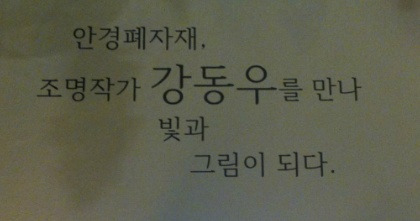 안경폐자재,
조명작가 강동우를 만나
빛과
그림이 되다.